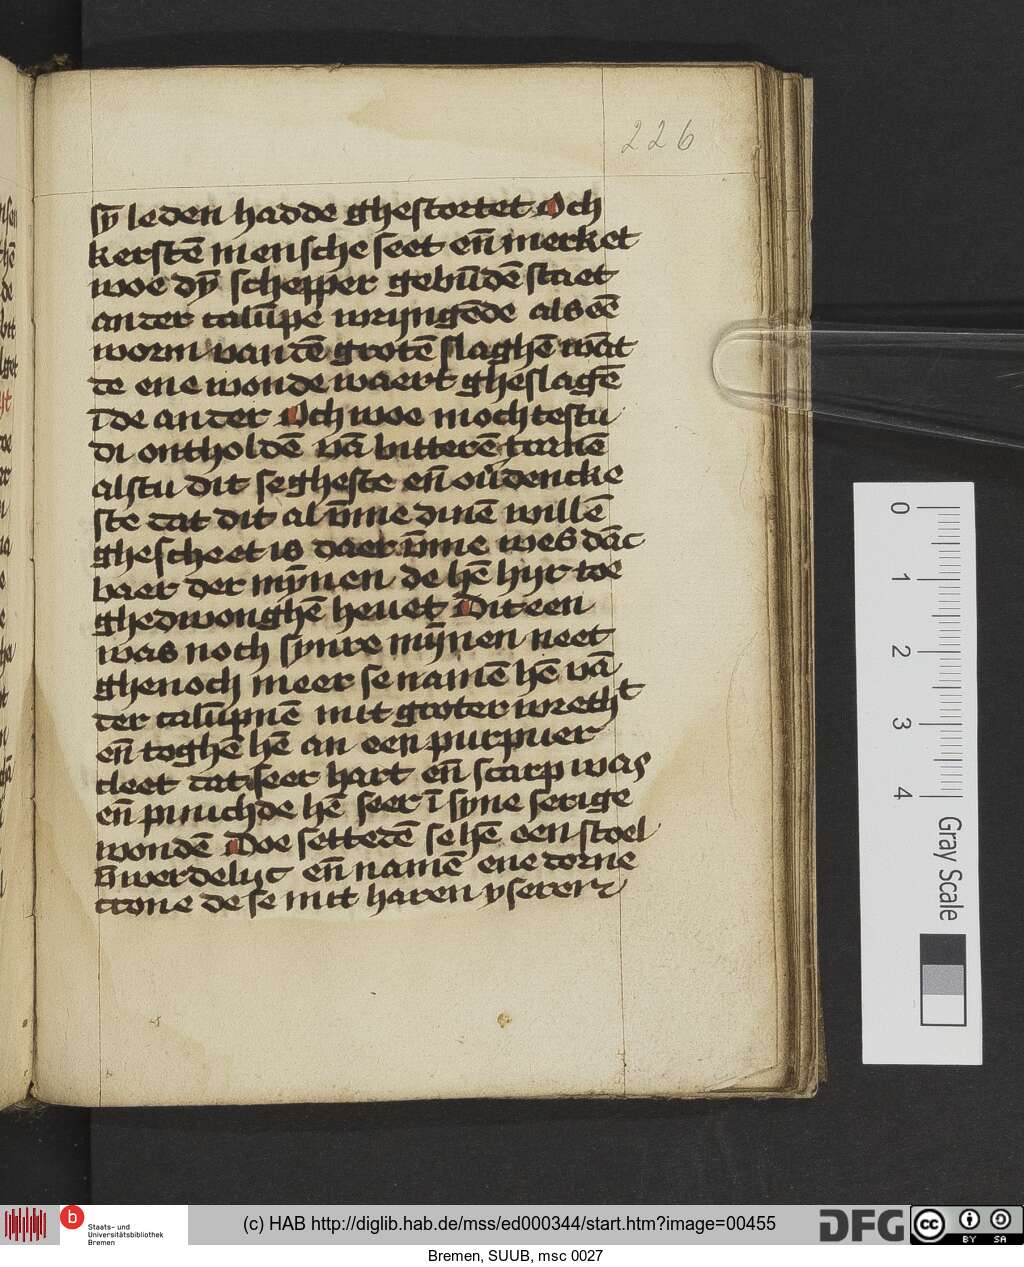 226
sȳ leden hadde ghestortet Och
kerstē mensche seet en̄ merket
woe dȳ schepper gebūdē staet
an der calūpē wrijngēde als eē
worm van dē grotē slaghē wāt
te ene wonde waert gheslagē
ī de ander Och woe mochtestu
di ontholdē vā bitterē
alstu dit segheste en̄ ou̅dencke
ste dat dit al v̄me dinē willē
ghescheet is daer v̄me wes dāc
baer der mȳnen de hē hijr toe
ghedwonghē heuet Dit een
was noch synre mȳnen neet
ghenoch meer se namē hē vā
der calūpnē mit groter wreth t
en̄ toghē hē an een purpuer
cleet dat seer hart en̄ scarp was
en̄ pinichde hē seer ī syne serige
wondē Doe settedē se hē een stoel
v̄werdelijc en̄ namē ene dorne
crone de se mit haren yseren
0 1 2 3 4
Gray Scale
b
Staats- und
Universitätsbibliothek
Bremen
(c) HAB http://diglib.hab.de/mss/ed000344/start.htm?image=00455
DFG
cc BY SA
Bremen, SUUB, msc 0027